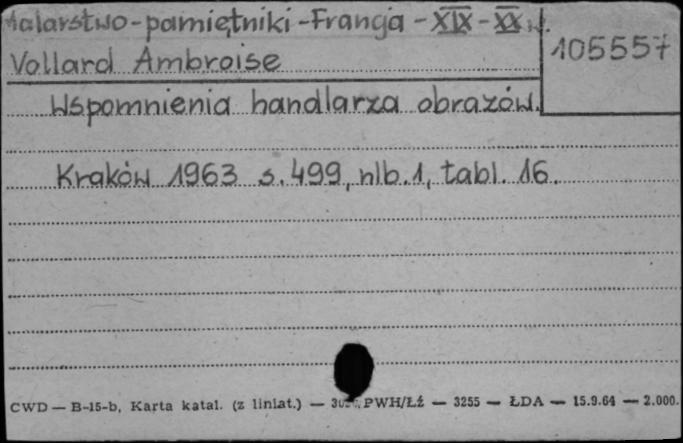 Malarstwo-pamiętniki-Francja-XIX-XX w.
105557
Vollard Ambroise
Wspomnienia handlarza obrazów.
Kraków 1963 s. 499, nlb. 1, tabl. 16.
CWD — B-15-b, Karta katal. (z liniat.) — PWH/Łź — 3255 — ŁDA — 15.9.64 — 2.000.